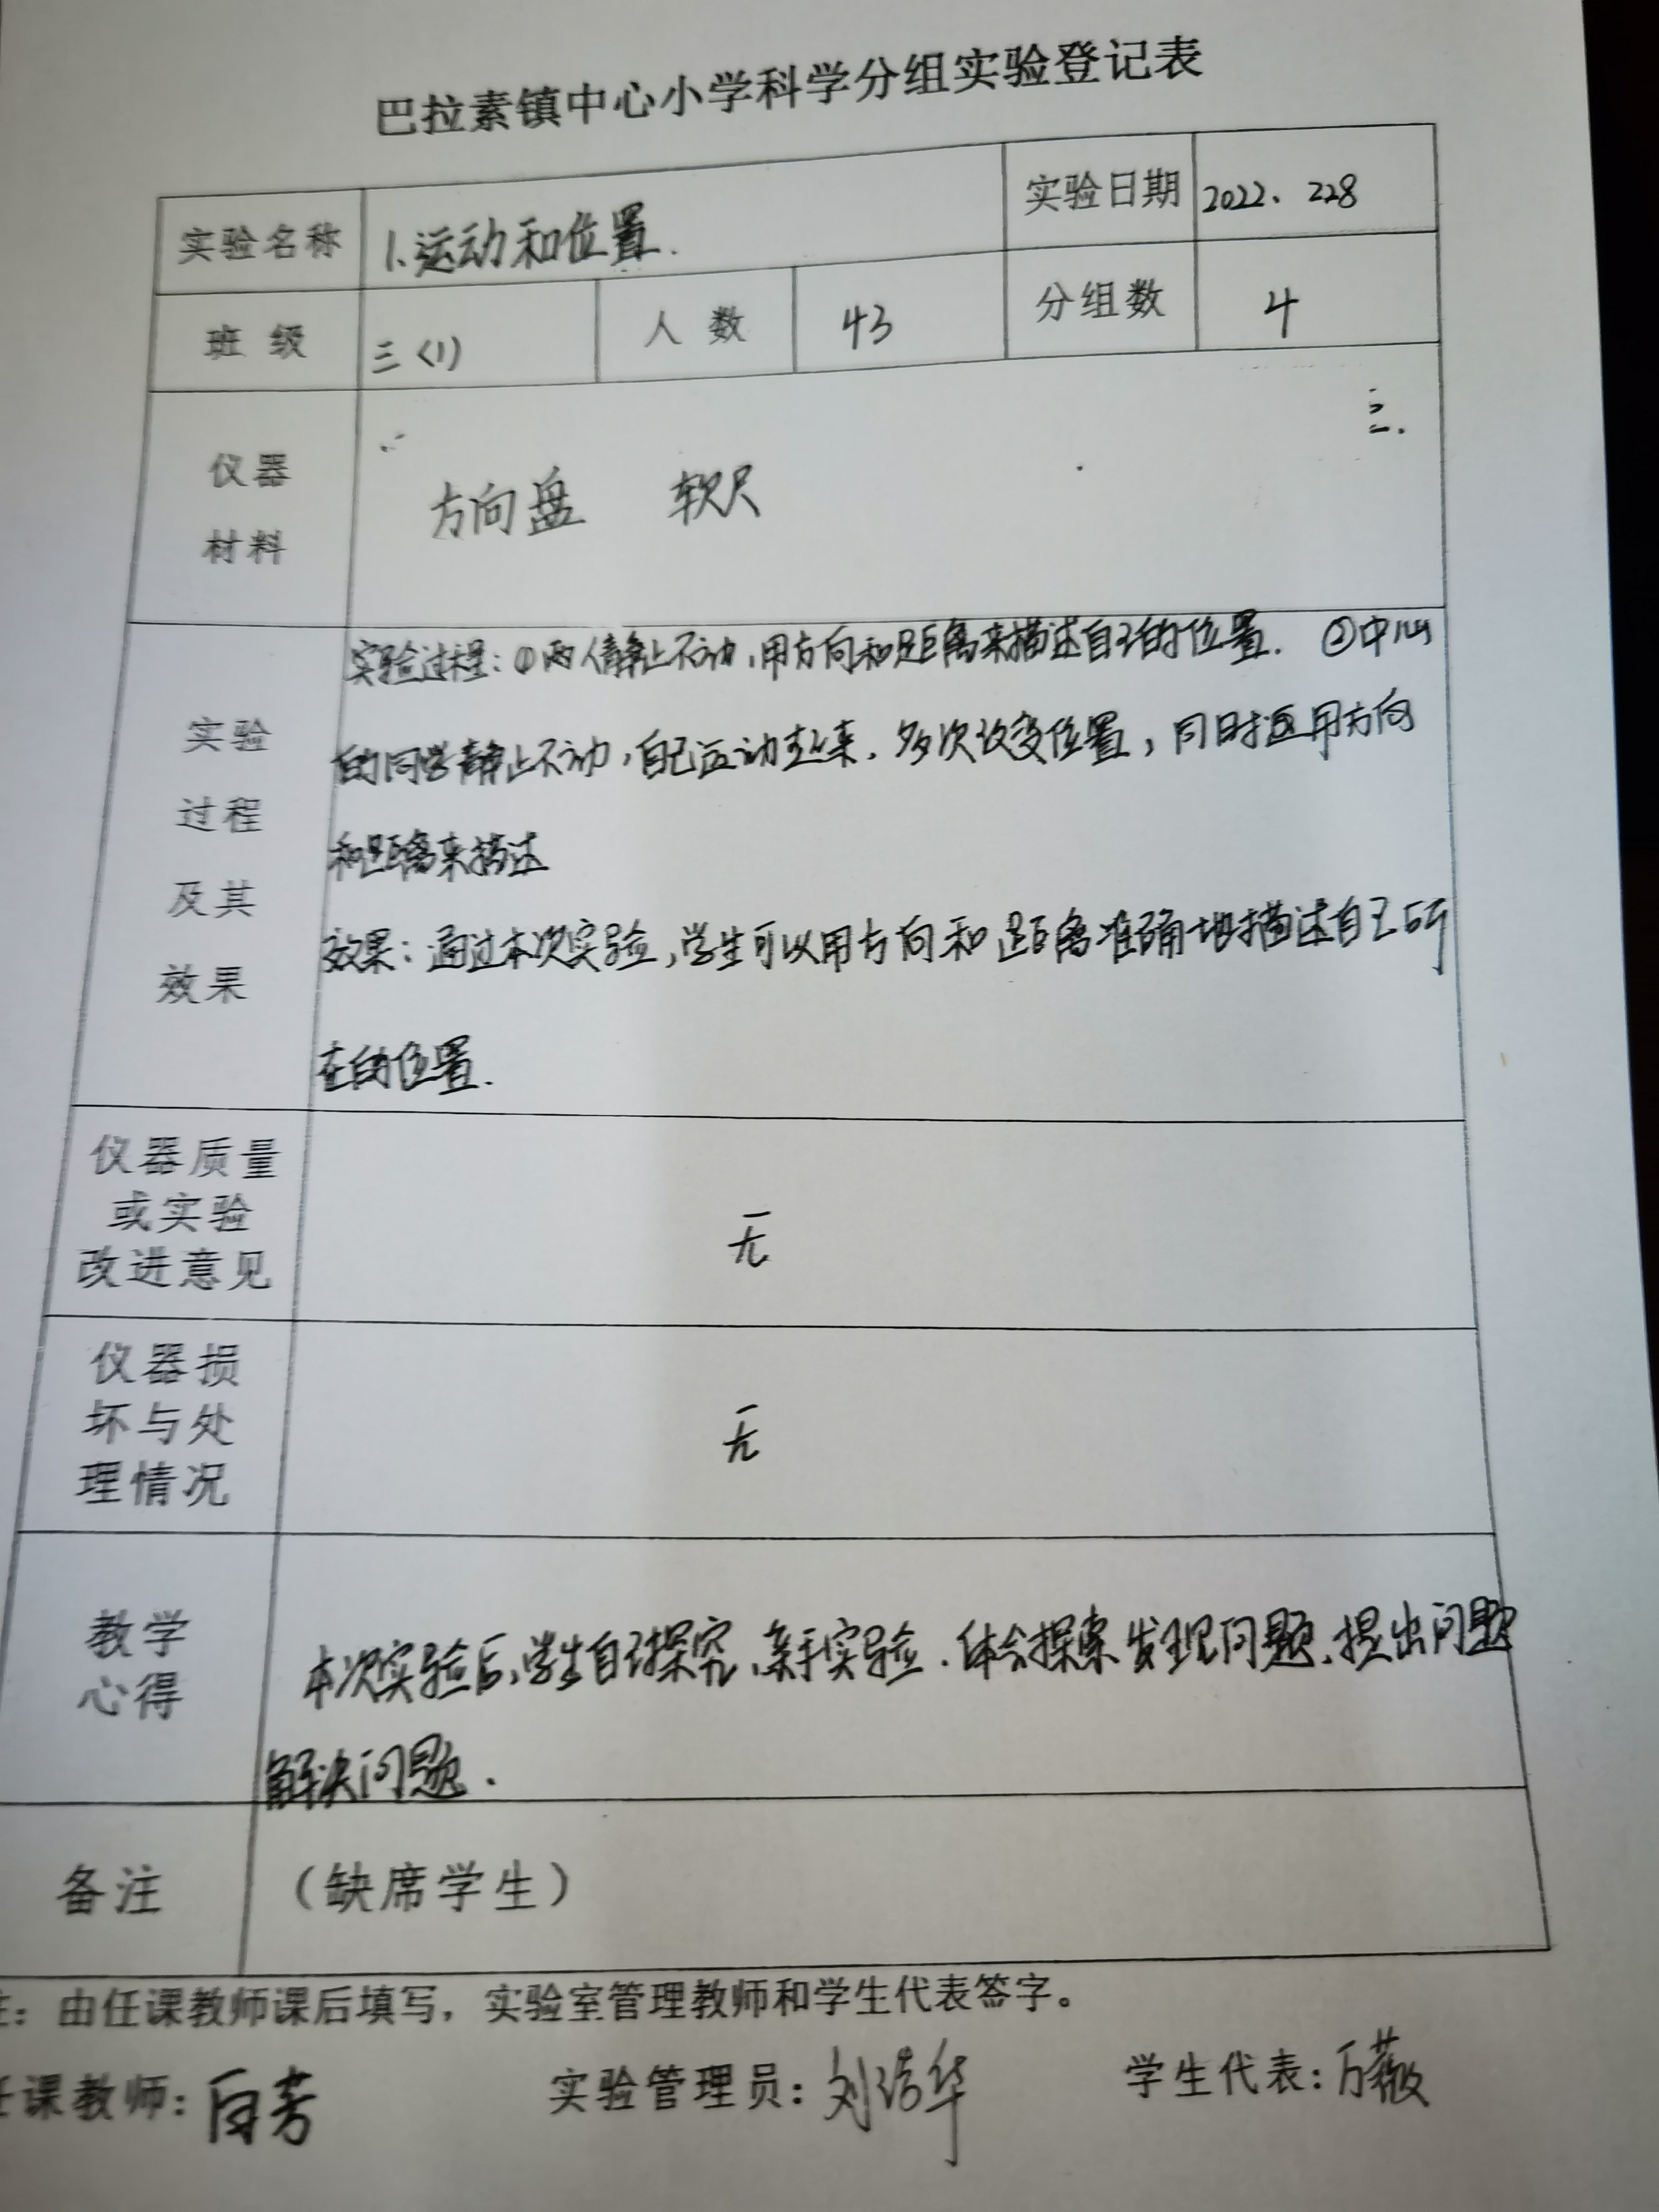 巴拉素镇中心小学科学分组实验登记表
实验名称 1、运动和位置. 实验日期 2022、228
班 级 三(1) 人 数 43 分组数 4
仪器
材料
方向盘 软尺
实验
过程
及其
效果
实验过程:①两人静止不动,用方向和距离来描述自己的位置. ②中心
的同学静止不动,自己运动起来,多次改变位置,同时运用方向
和距离来描述
效果:通过本次实验,学生可以用方向和距离准确地描述自己所
在的位置.
仪器质量
或实验
改进意见
无
仪器损
坏与处
理情况
无
教学
心得
本次实验后,学生自己探究、亲手实验.体会探索发现问题、提出问题
解决问题.
备注 (缺席学生)
注:由任课教师课后填写,实验室管理教师和学生代表签字。
任课教师: 实验管理员:刘 华 学生代表:万薇